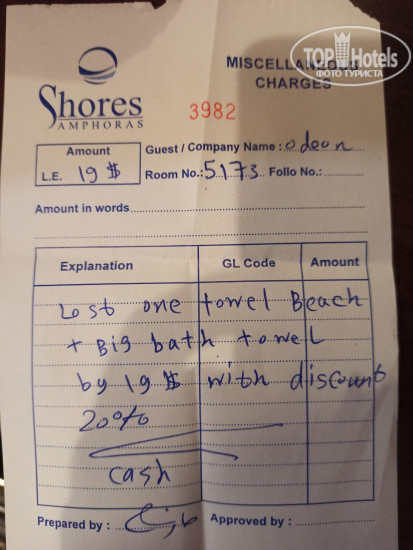 TOP Hotels
ФОТО ТУРИСТА
MISCELLANEOUS
CHARGES
Shores
AMPHORAS
3982
Amount
L.E. 19 $
Guest / Company Name : odeon
Room No.: 5173 Folio No.:
Amount in words
Explanation GL Code Amount
Lost one towel Beach
+ Big bath towel
by 19 $ with discount
20%
cash
Prepared by : Approved by :